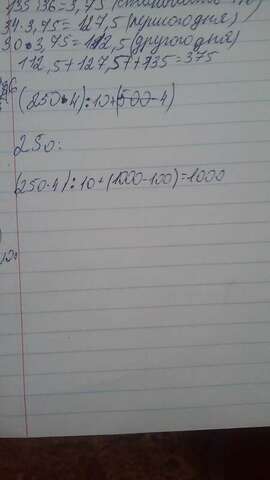 135:36=3,75 (
34·3,75=127,5 (першого дня)
30·3,75=112,5 (другого дня)
112,5+127,5+135=375
(250·4):10+(500·4)
250:
(250·4):10+(1000-100)=1000